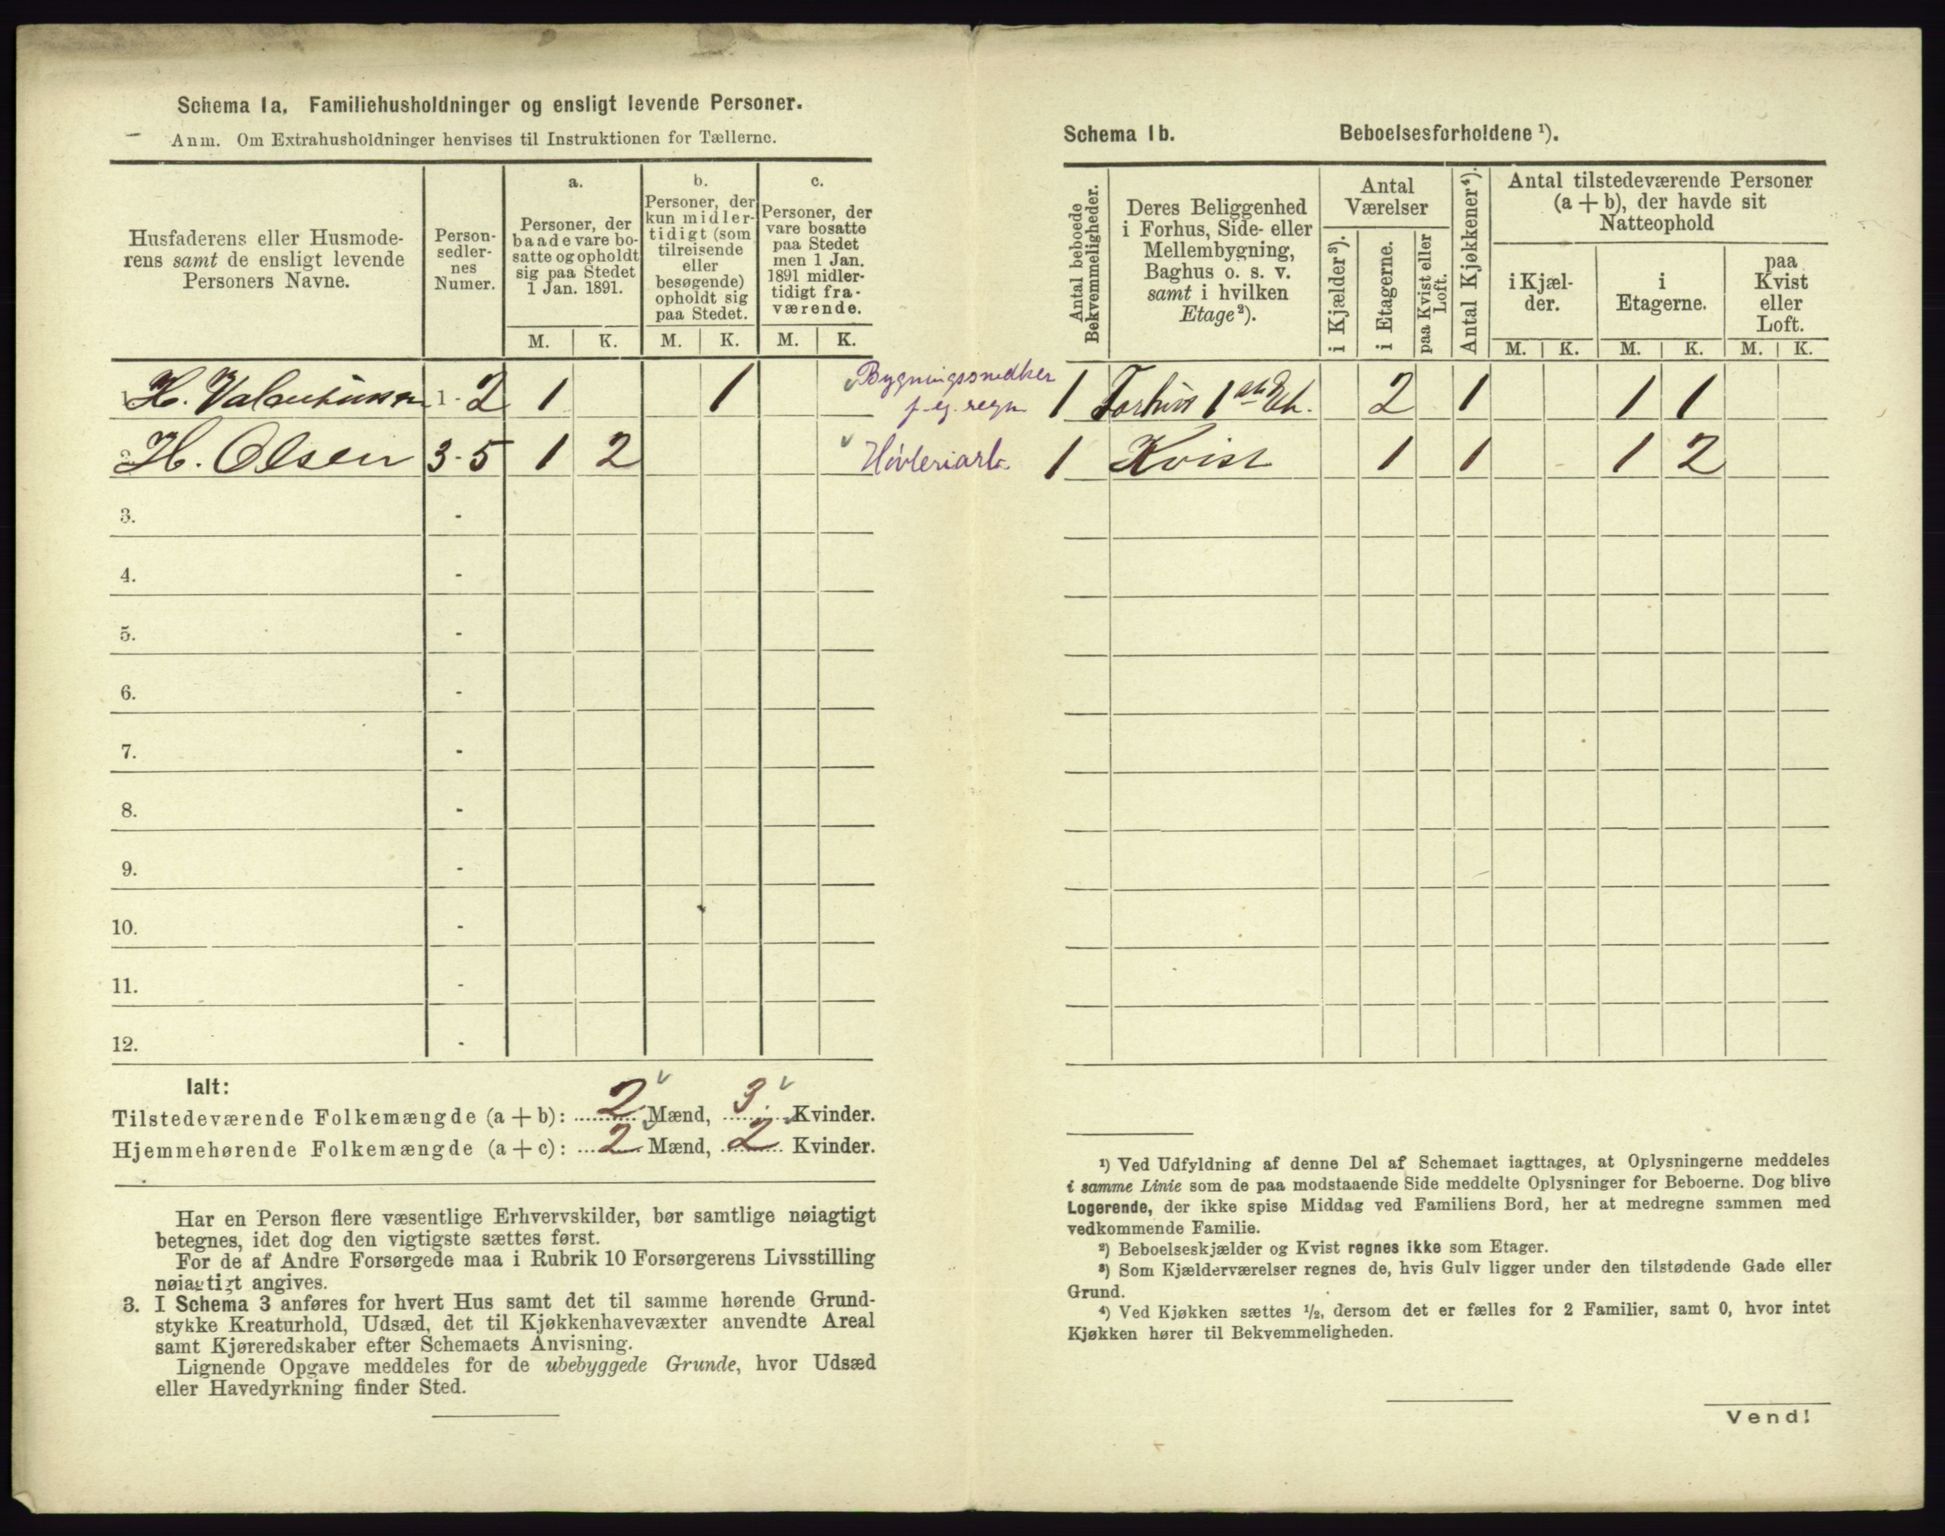 Schema 1a. Familiehusholdninger og ensligt levende Personer.
Anm. Om Extrahusholdninger henvises til Instruktionen for Tællerne.
Husfaderens eller Husmode-
rens samt de ensligt levende
Personers Navne.
Person-
sedler-
nes
Numer.
a.
Personer, der
baade vare bo-
satte og opholdt
sig paa Stedet
1 Jan. 1891.
b.
Personer, der
kun midler-
tidigt (som
tilreisende
eller
besøgende)
opholdt sig
paa Stedet.
c.
Personer, der
vare bosatte
paa Stedet
men 1 Jan.
1891 midler-
tidigt fra-
værende.
M. K. M. K. M. K.
1. H. 1 - 2 1 1 Bygningssnedker
f. eg. regn
2. H. Olsen 3 - 5 1 2 Høvleriarb.
3. -
4. -
5. -
6. -
7. -
8. -
9. -
10. -
11. -
12. -
Ialt:
Tilstedeværende Folkemængde (a + b): 2 Mænd, 3 Kvinder.
Hjemmehørende Folkemængde (a + c): 2 Mænd, 2 Kvinder.
Har en Person flere væsentlige Erhvervskilder, bør samtlige nøiagtigt
betegnes, idet dog den vigtigste sættes først.
For de af Andre Forsørgede maa i Rubrik 10 Forsørgerens Livsstilling
nøiagtigt angives.
3. I Schema 3 anføres for hvert Hus samt det til samme hørende Grund-
stykke Kreaturhold, Udsæd, det til Kjøkkenhavevæxter anvendte Areal
samt Kjøreredskaber efter Schemaets Anvisning.
Lignende Opgave meddeles for de ubebyggede Grunde, hvor Udsæd
eller Havedyrkning finder Sted.
Schema 1b. Beboelsesforholdene ¹).
Antal beboede
Bekvemmeligheder.
Deres Beliggenhed
i Forhus, Side- eller
Mellembygning,
Baghus o. s. v.
samt i hvilken
Etage²).
Antal
Værelser
i Kjælder³).
i Etagerne.
paa Kvist eller
Loft.
Antal Kjøkkener⁴).
Antal tilstedeværende Personer
(a + b), der havde sit
Natteophold
i Kjæl-
der.
i
Etagerne.
paa
Kvist
eller
Loft.
M. K. M. K. M. K.
1 Forhus 1 2 1 1 1
1 Kvist 1 1 1 2
¹) Ved Udfyldning af denne Del af Schemaet iagttages, at Oplysningerne meddeles
i samme Linie som de paa modstaaende Side meddelte Oplysninger for Beboerne. Dog blive
Logerende, der ikke spise Middag ved Familiens Bord, her at medregne sammen med
vedkommende Familie.
²) Beboelseskjælder og Kvist regnes ikke som Etager.
³) Som Kjælderværelser regnes de, hvis Gulv ligger under den tilstødende Gade eller
Grund.
⁴) Ved Kjøkken sættes ½, dersom det er fælles for 2 Familier, samt 0, hvor intet
Kjøkken hører til Bekvemmeligheden.
Vend!